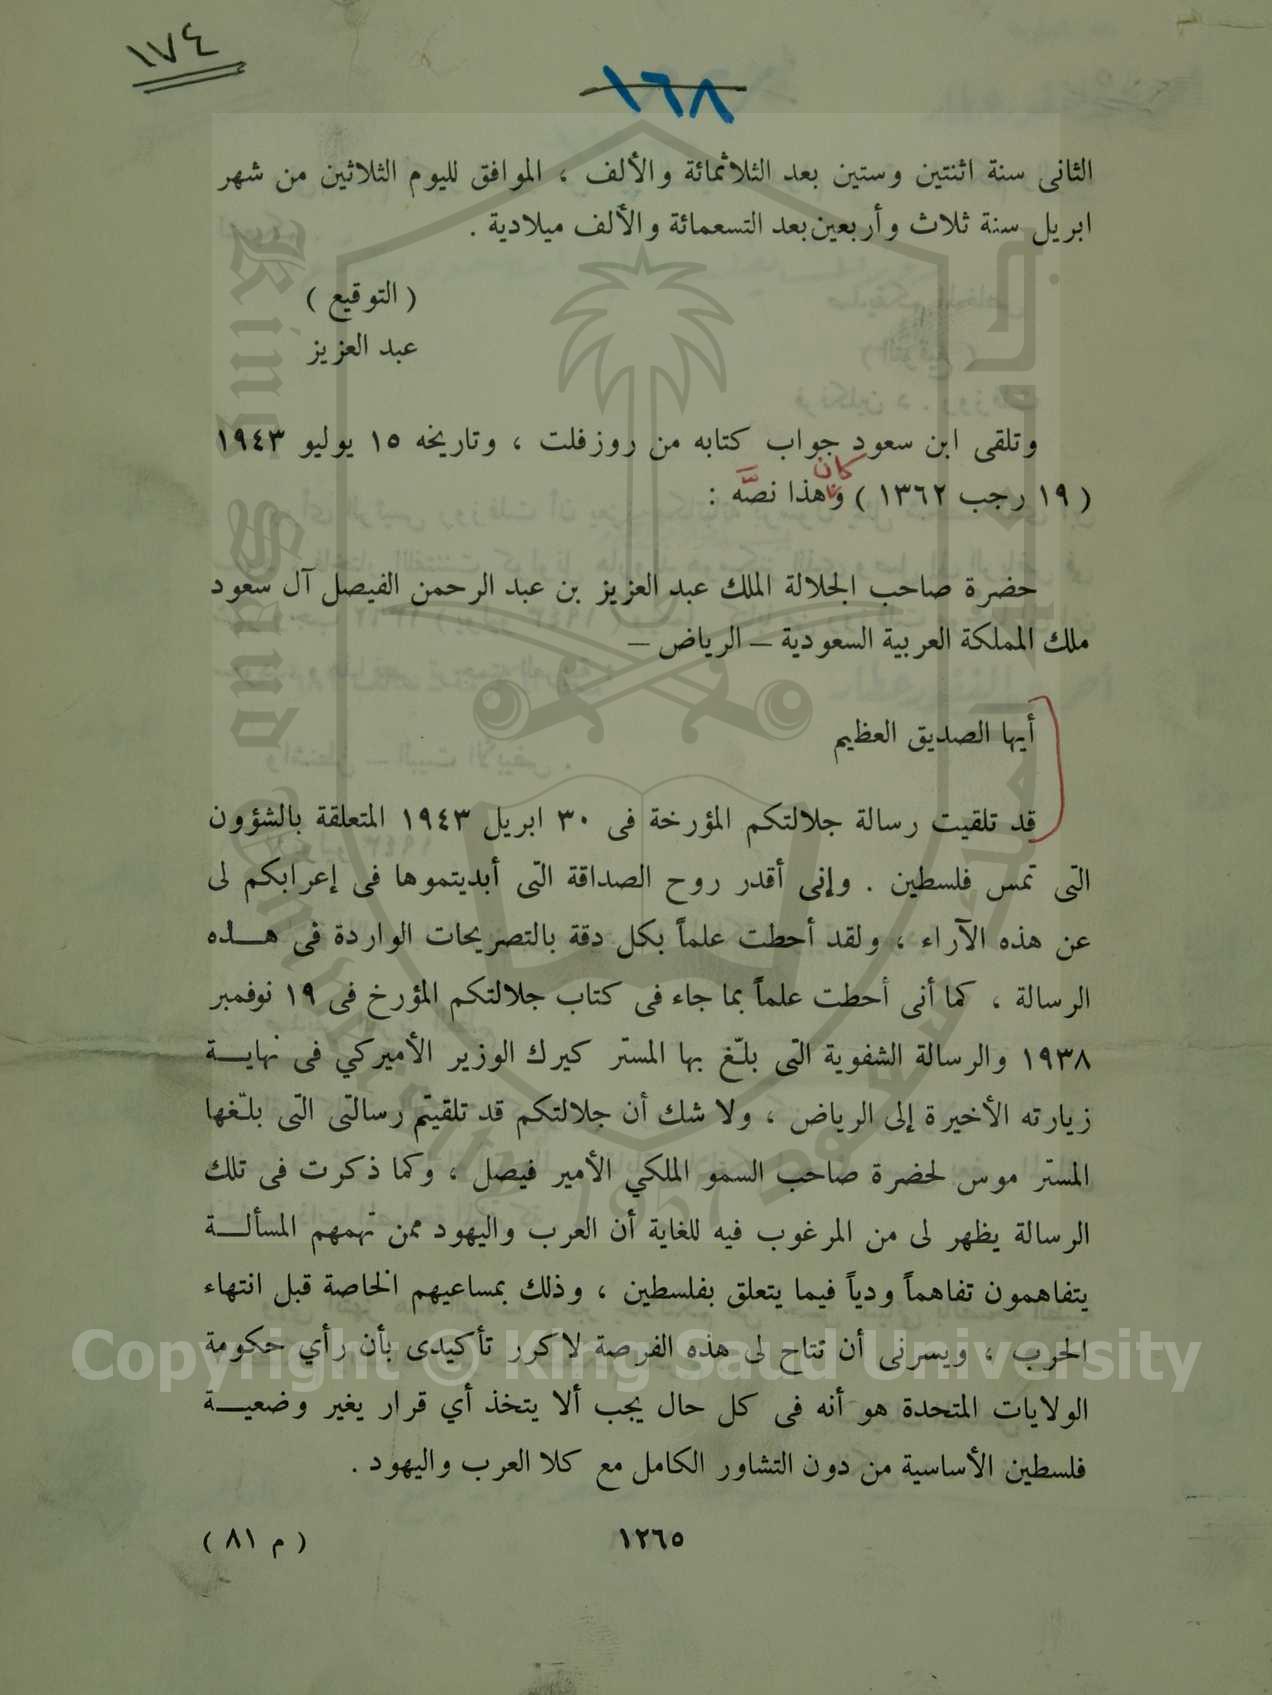 ١٧٤
١٦٨
الثانى سنة اثنتين وستين بعد الثلاثمائة والألف ، الموافق لليوم الثلاثين من شهر
ابريل سنة ثلاث وأربعين بعد التسعمائة والألف ميلادية .
( التوقيع )
عبد العزيز
وتلقى ابن سعود جواب كتابه من روزفلت ، وتاريخه ١٥ يوليو ١٩٤٣
كان
( ١٩ رجب ١٣٦٢ ) وهذا نصّه :
حضرة صاحب الجلالة الملك عبد العزيز بن عبد الرحمن الفيصل آل سعود
ملك المملكة العربية السعودية – الرياض –
أيها الصديق العظيم
قد تلقيت رسالة جلالتكم المؤرخة فى ٣٠ ابريل ١٩٤٣ المتعلقة بالشؤون
التى تمس فلسطين . وإنى أقدر روح الصداقة التى أبديتموها فى إعرابكم لى
عن هذه الآراء ، ولقد أحطت علماً بكل دقة بالتصريحات الواردة فى هـذه
الرسالة ، كما أنى أحطت علماً بما جاء فى كتاب جلالتكم المؤرخ فى ١٩ نوفمبر
١٩٣٨ والرسالة الشفوية التى بلّغ بها المستر كيرك الوزير الأميركي فى نهايـة
زيارته الأخيرة إلى الرياض ، ولا شك أن جلالتكم قد تلقيتم رسالتى التى بلّغها
المستر موس لحضرة صاحب السمو الملكي الأمير فيصل ، وكما ذكرت فى تلك
الرسالة يظهر لى من المرغوب فيه للغاية أن العرب واليهود ممن تهمهم المسألـة
يتفاهمون تفاهماً ودياً فيما يتعلق بفلسطين ، وذلك بمساعيهم الخاصة قبل انتهاء
الحرب ، ويسرنى أن تتاح لى هذه الفرصة لاكرر تأكيدى بأن رأي حكومة
الولايات المتحدة هو أنه فى كل حال يجب ألا يتخذ أي قرار يغير وضعيـة
فلسطين الأساسية من دون التشاور الكامل مع كلا العرب واليهود .
١٢٦٥
( م ٨١ )
Copyright © King Saud University
King Saud University
جامعة الملك سعود
1957